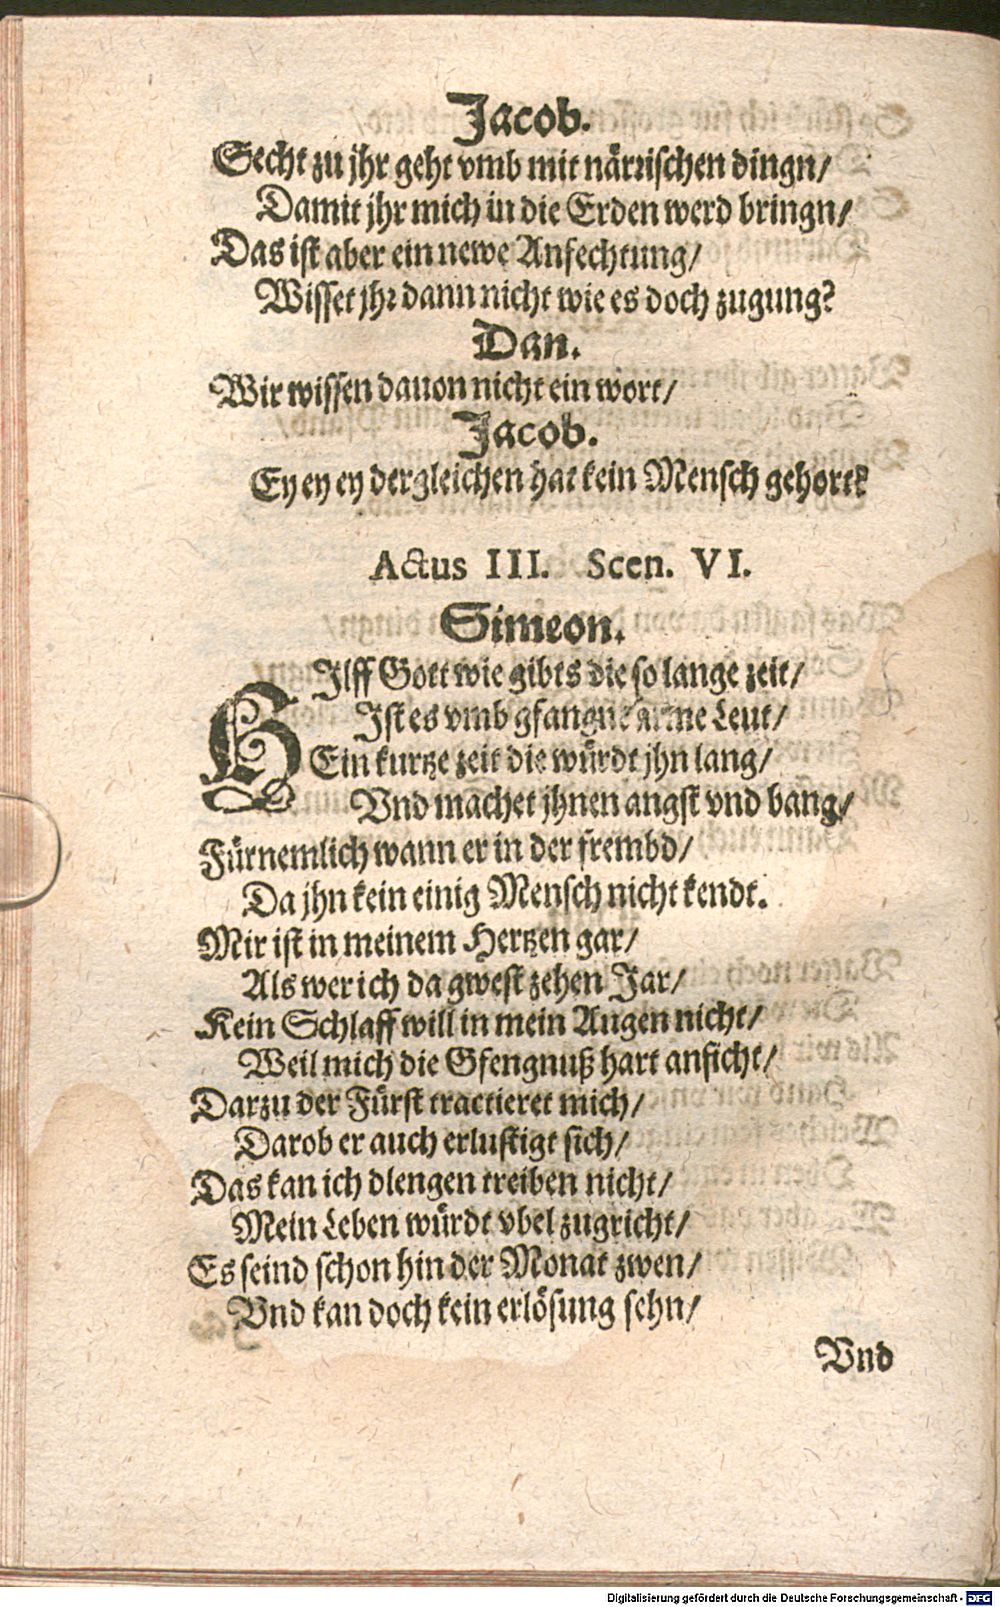 Jacob.
Secht zu jhr geht vmb mit närrischen dingn/
Damit jhr mich in die Erden werd bringn/
Das ist aber ein newe Anfechtung/
Wisset jhr dann nicht wie es doch zugung?
Dan.
Wir wissen dauon nicht ein wort/
Jacob.
Ey ey ey dergleichen hat kein Mensch gehort?
Actus III. Scen. VI.
Simeon.
HJlff Gott wie gibts die so lange zeit/
Ist es vmb gfangne arme Leut/
Ein kurtze zeit die würdt jhn lang/
Vnd machet jhnen angst vnd bang/
Fürnemlich wann er in der frembd/
Da jhn kein einig Mensch nicht kendt.
Mir ist in meinem Hertzen gar/
Als wer ich da gwest zehen Jar/
Kein Schlaff will in mein Augen nicht/
Weil mich die Gfengnuß hart anficht/
Darzu der Fürst tractieret mich/
Darob er auch erlustigt sich/
Das kan ich dlengen treiben nicht/
Mein Leben würdt vbel zugricht/
Es seind schon hin der Monat zwen/
Vnd kan doch kein erlösung sehn/
Vnd
Digitalisierung gefördert durch die Deutsche Forschungsgemeinschaft - DFG